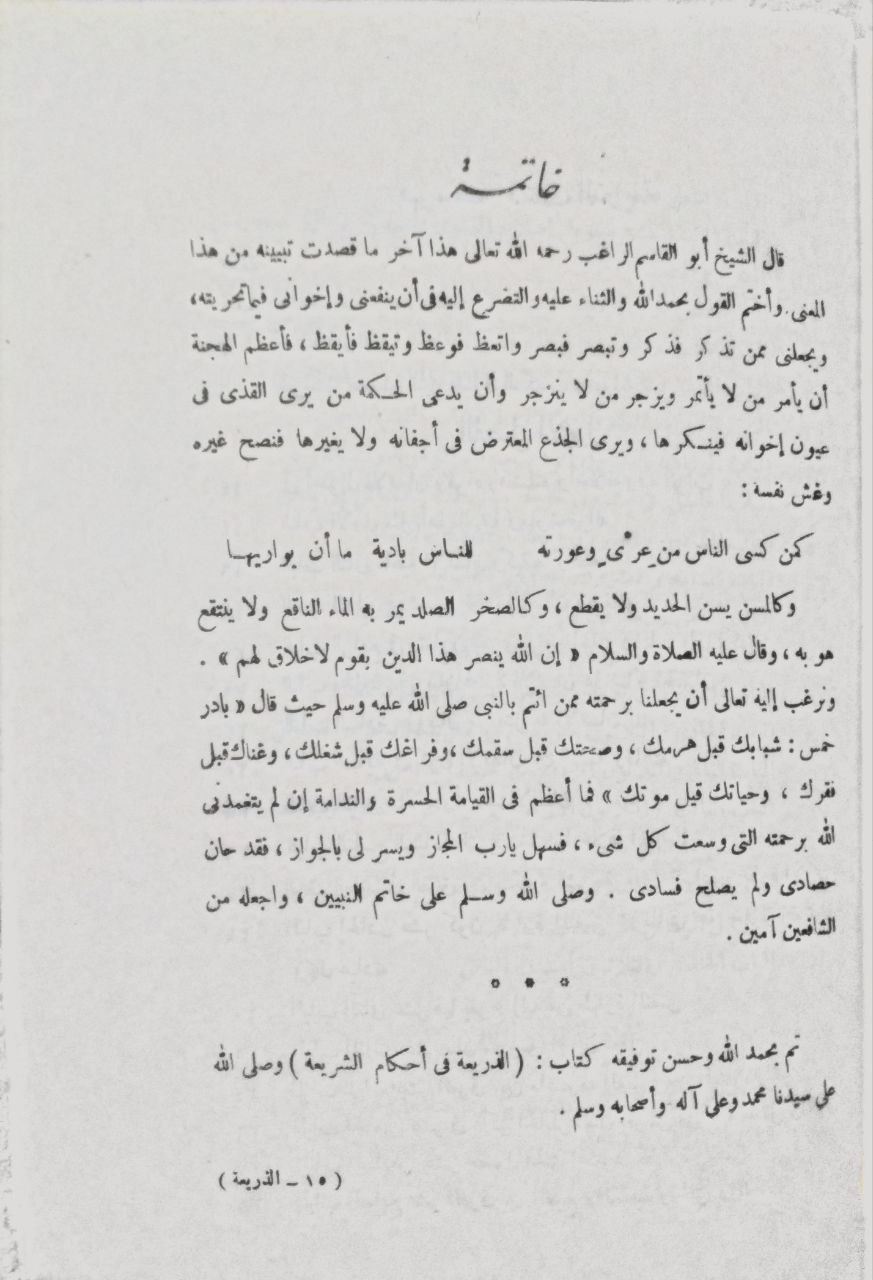 خاتمة
قال الشيخ أبو القاسم الراغب رحمه الله تعالى هذا آخر ما قصدت تبيينه من هذا
المعنى. وأختم القول بحمد الله والثناء عليه والتضرع إليه فى أن ينفعنى وإخوانى فيما تحريته،
ويجعلنى ممن تذكر فذكر وتبصر فبصر واتعظ فوعظ وتيقظ فأيقظ، فأعظم الهجنة
أن يأمر من لا يأتمر ويزجر من لا ينزجر وأن يدعى الحكمة من يرى القذى فى
عيون إخوانه فينكرها، ويرى الجذع المعترض فى أجفانه ولا يغيرها فنصح غيره
وغش نفسة:
كمن كسى الناس من عرْىٍ وعورته للناس بادية ما أن يواريها
وكالمسن يسن الحديد ولا يقطع، وكالصخر الصلد يمر به الماء الناقع ولا ينتقع
هو به، وقال عليه الصلاة والسلام «إن الله ينصر هذا الدين بقوم لاخلاق لهم».
ونرغب إليه تعالى أن يجعلنا برحمته ممن ائتم بالنبى صلى الله عليه وسلم حيث قال «بادر
خمس: شبابك قبل هرمك، وصحتك قبل سقمك، وفراغك قبل شغلك، وغناك قبل
فقرك، وحياتك قيل موتك» فما أعظم فى القيامة الحسرة والندامة إن لم يتغمدنى
الله برحمته التى وسعت كل شىء، فسهل يارب المجاز ويسر لى بالجواز، فقد حان
حصادى ولم يصلح فسادى. وصلى الله وسلم على خاتم النبيين، واجعله من
الشافعين آمين.
* * *
تم بحمد الله وحسن توفيقه كتاب: (الذريعة فى أحكام الشريعة) وصلى الله
على سيدنا محمد وعلى آله وأصحابه وسلم.
(١٥ - الذريعة)